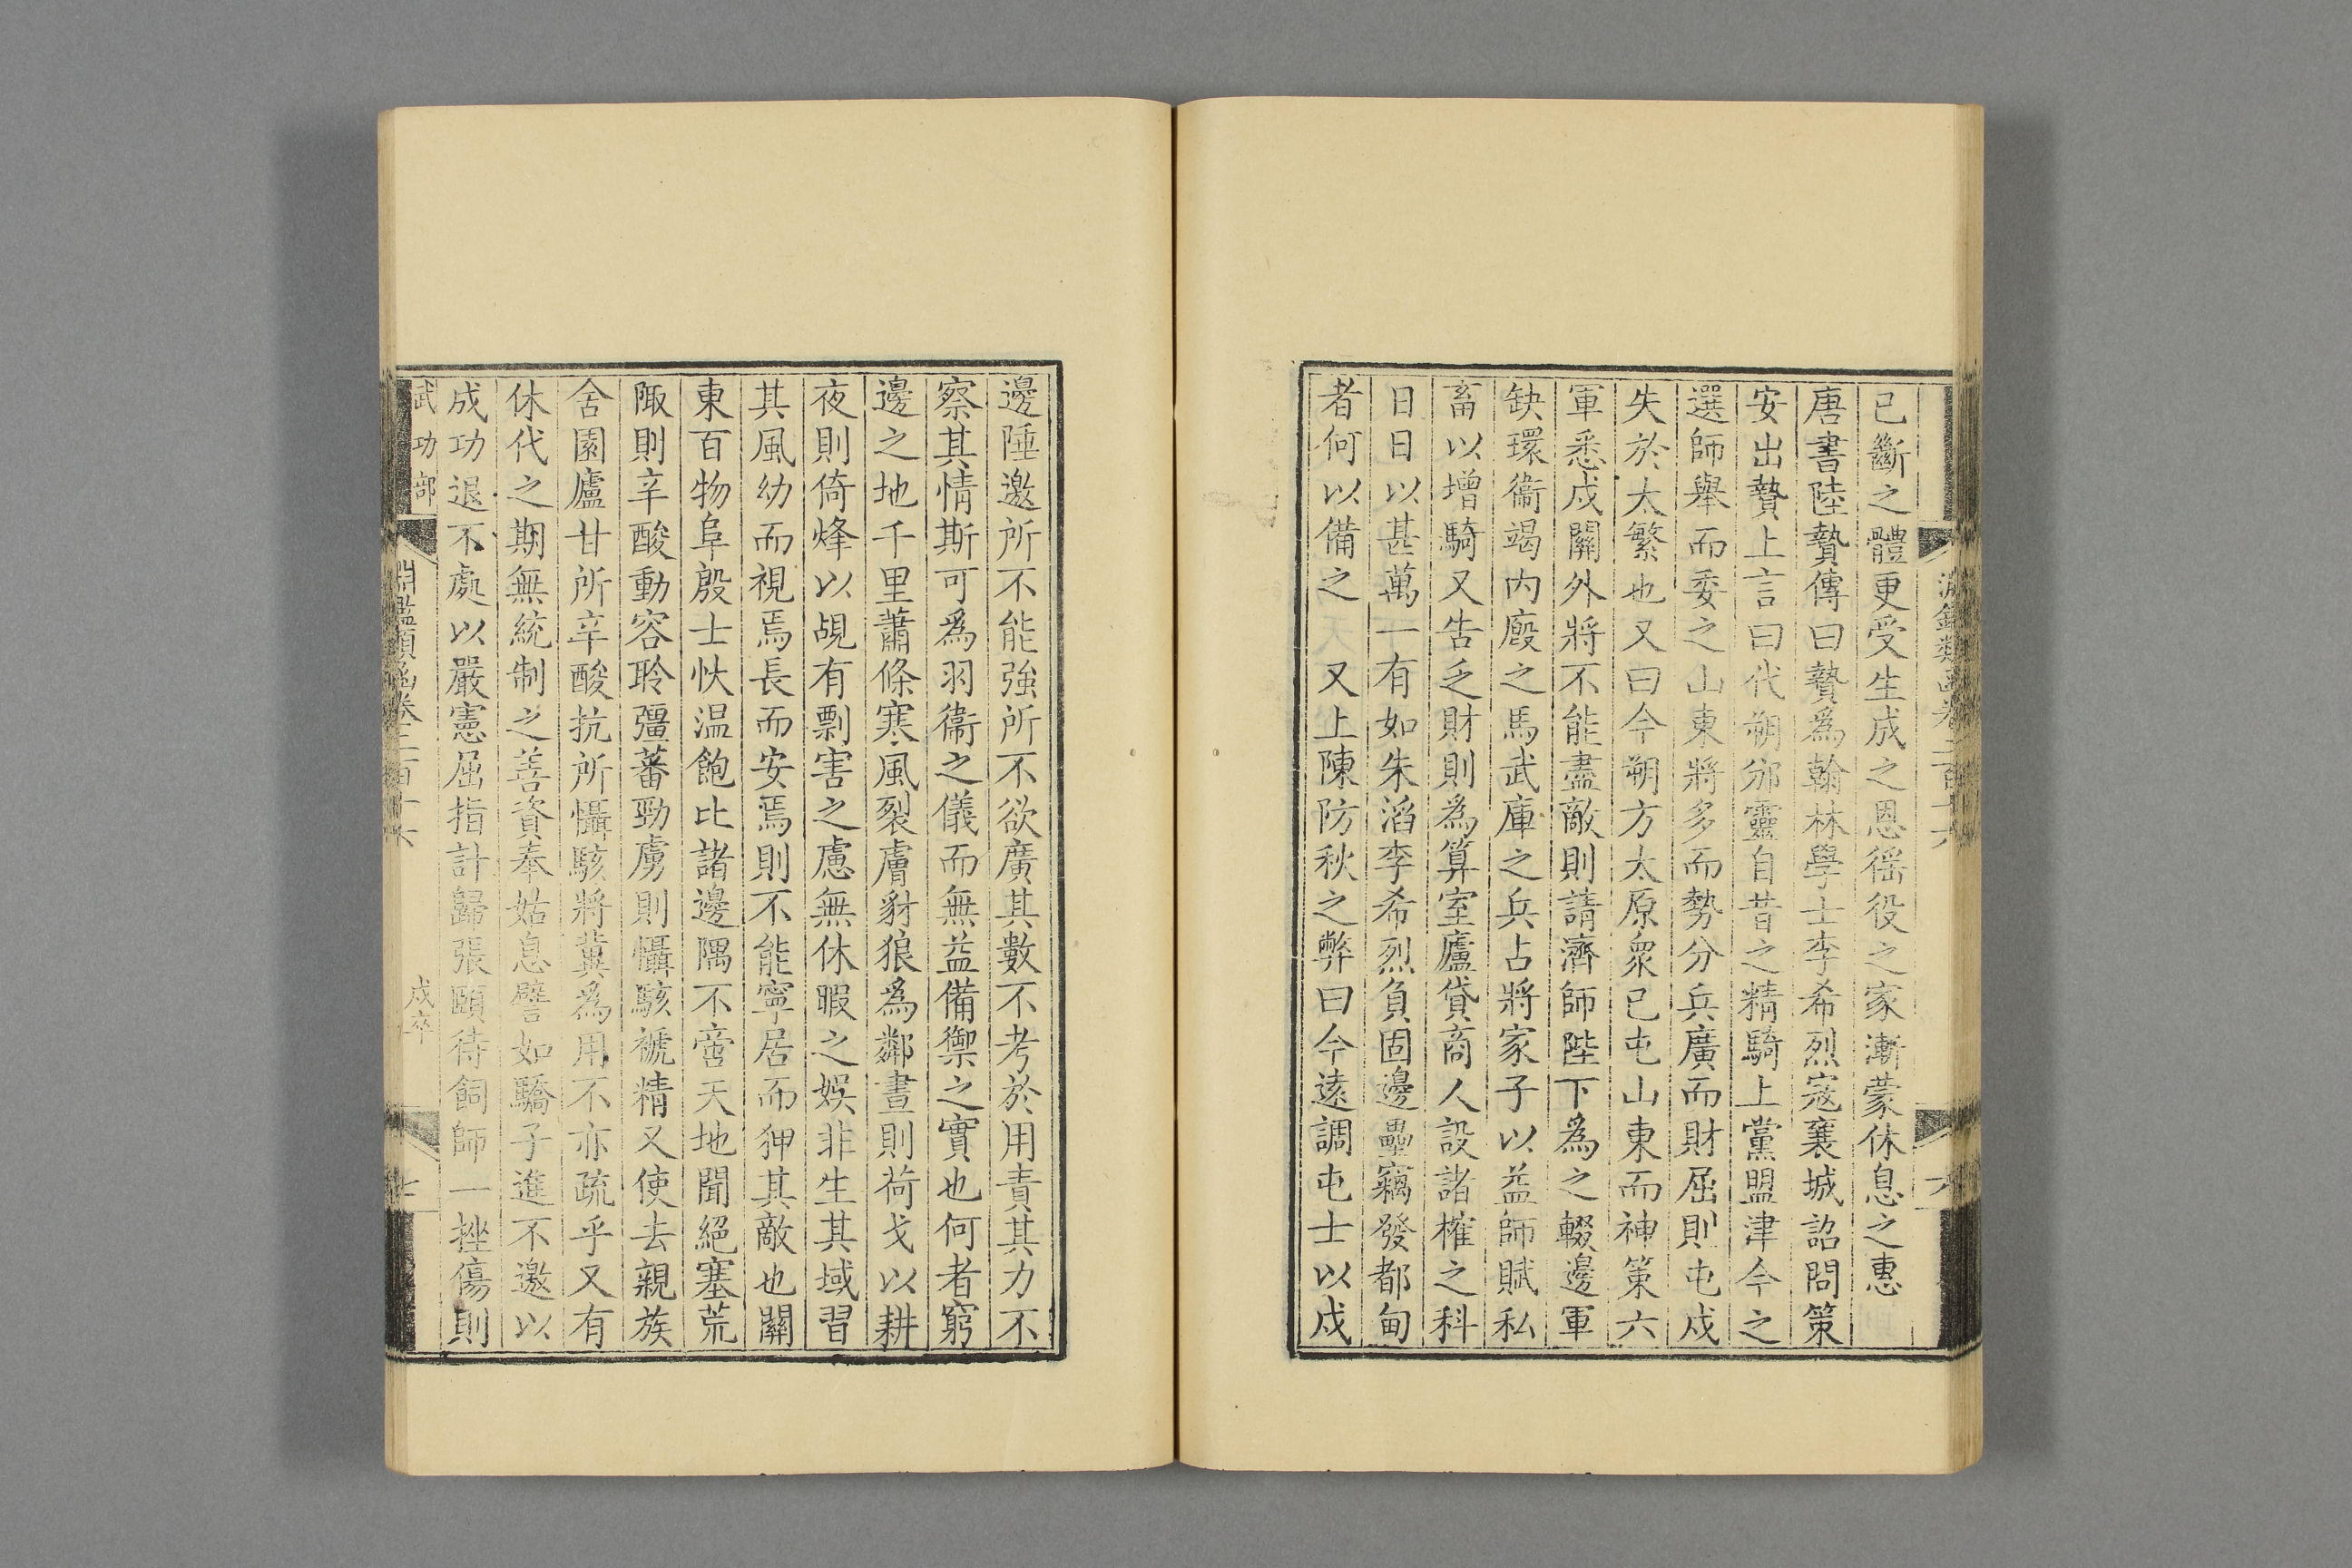 已斷之體更受生成之恩徭役之家漸蒙休息之惠
唐書陸贄傳曰贄爲翰林學士李希烈寇襄城詔問策
安出贄上言曰代朔邠靈自昔之精騎上黨盟津今之
選師舉而委之山東將多而勢分兵廣而財屈則屯戍
失於太繁也又曰今朔方太原衆已屯山東而神策六
軍悉戍關外將不能盡敵則請濟師陛下爲之輟邊軍
缺環衞竭内廐之馬武庫之兵占將家子以益師賦私
畜以增騎又告乏財則爲算室廬貸商人設諸榷之科
日日以甚萬一有如朱滔李希烈負固邊壘竊發都甸
者何以備之　又上陳防秋之弊曰今遠調屯士以戍
邊陲邀所不能強所不欲廣其數不考於用責其力不
察其情斯可爲羽衞之儀而無益備禦之實也何者窮
邊之地千里蕭條寒風裂膚豺狼爲鄰晝則荷戈以耕
夜則倚烽以覘有剽害之慮無休暇之娛非生其域習
其風幼而視焉長而安焉則不能寧居而狎其敵也關
東百物阜殷士忕温飽比諸邊隅不啻天地聞絕塞荒
陬則辛酸動容聆彊蕃勁虜則懾駭褫精又使去親族
舍園廬甘所辛酸抗所懾駭將冀爲用不亦疏乎又有
休代之期無統制之善資奉姑息譬如驕子進不邀以
成功退不處以嚴憲屈指計歸張頤待飼師一挫傷則
武功部　淵鑑類函卷二百十六　戍卒　七